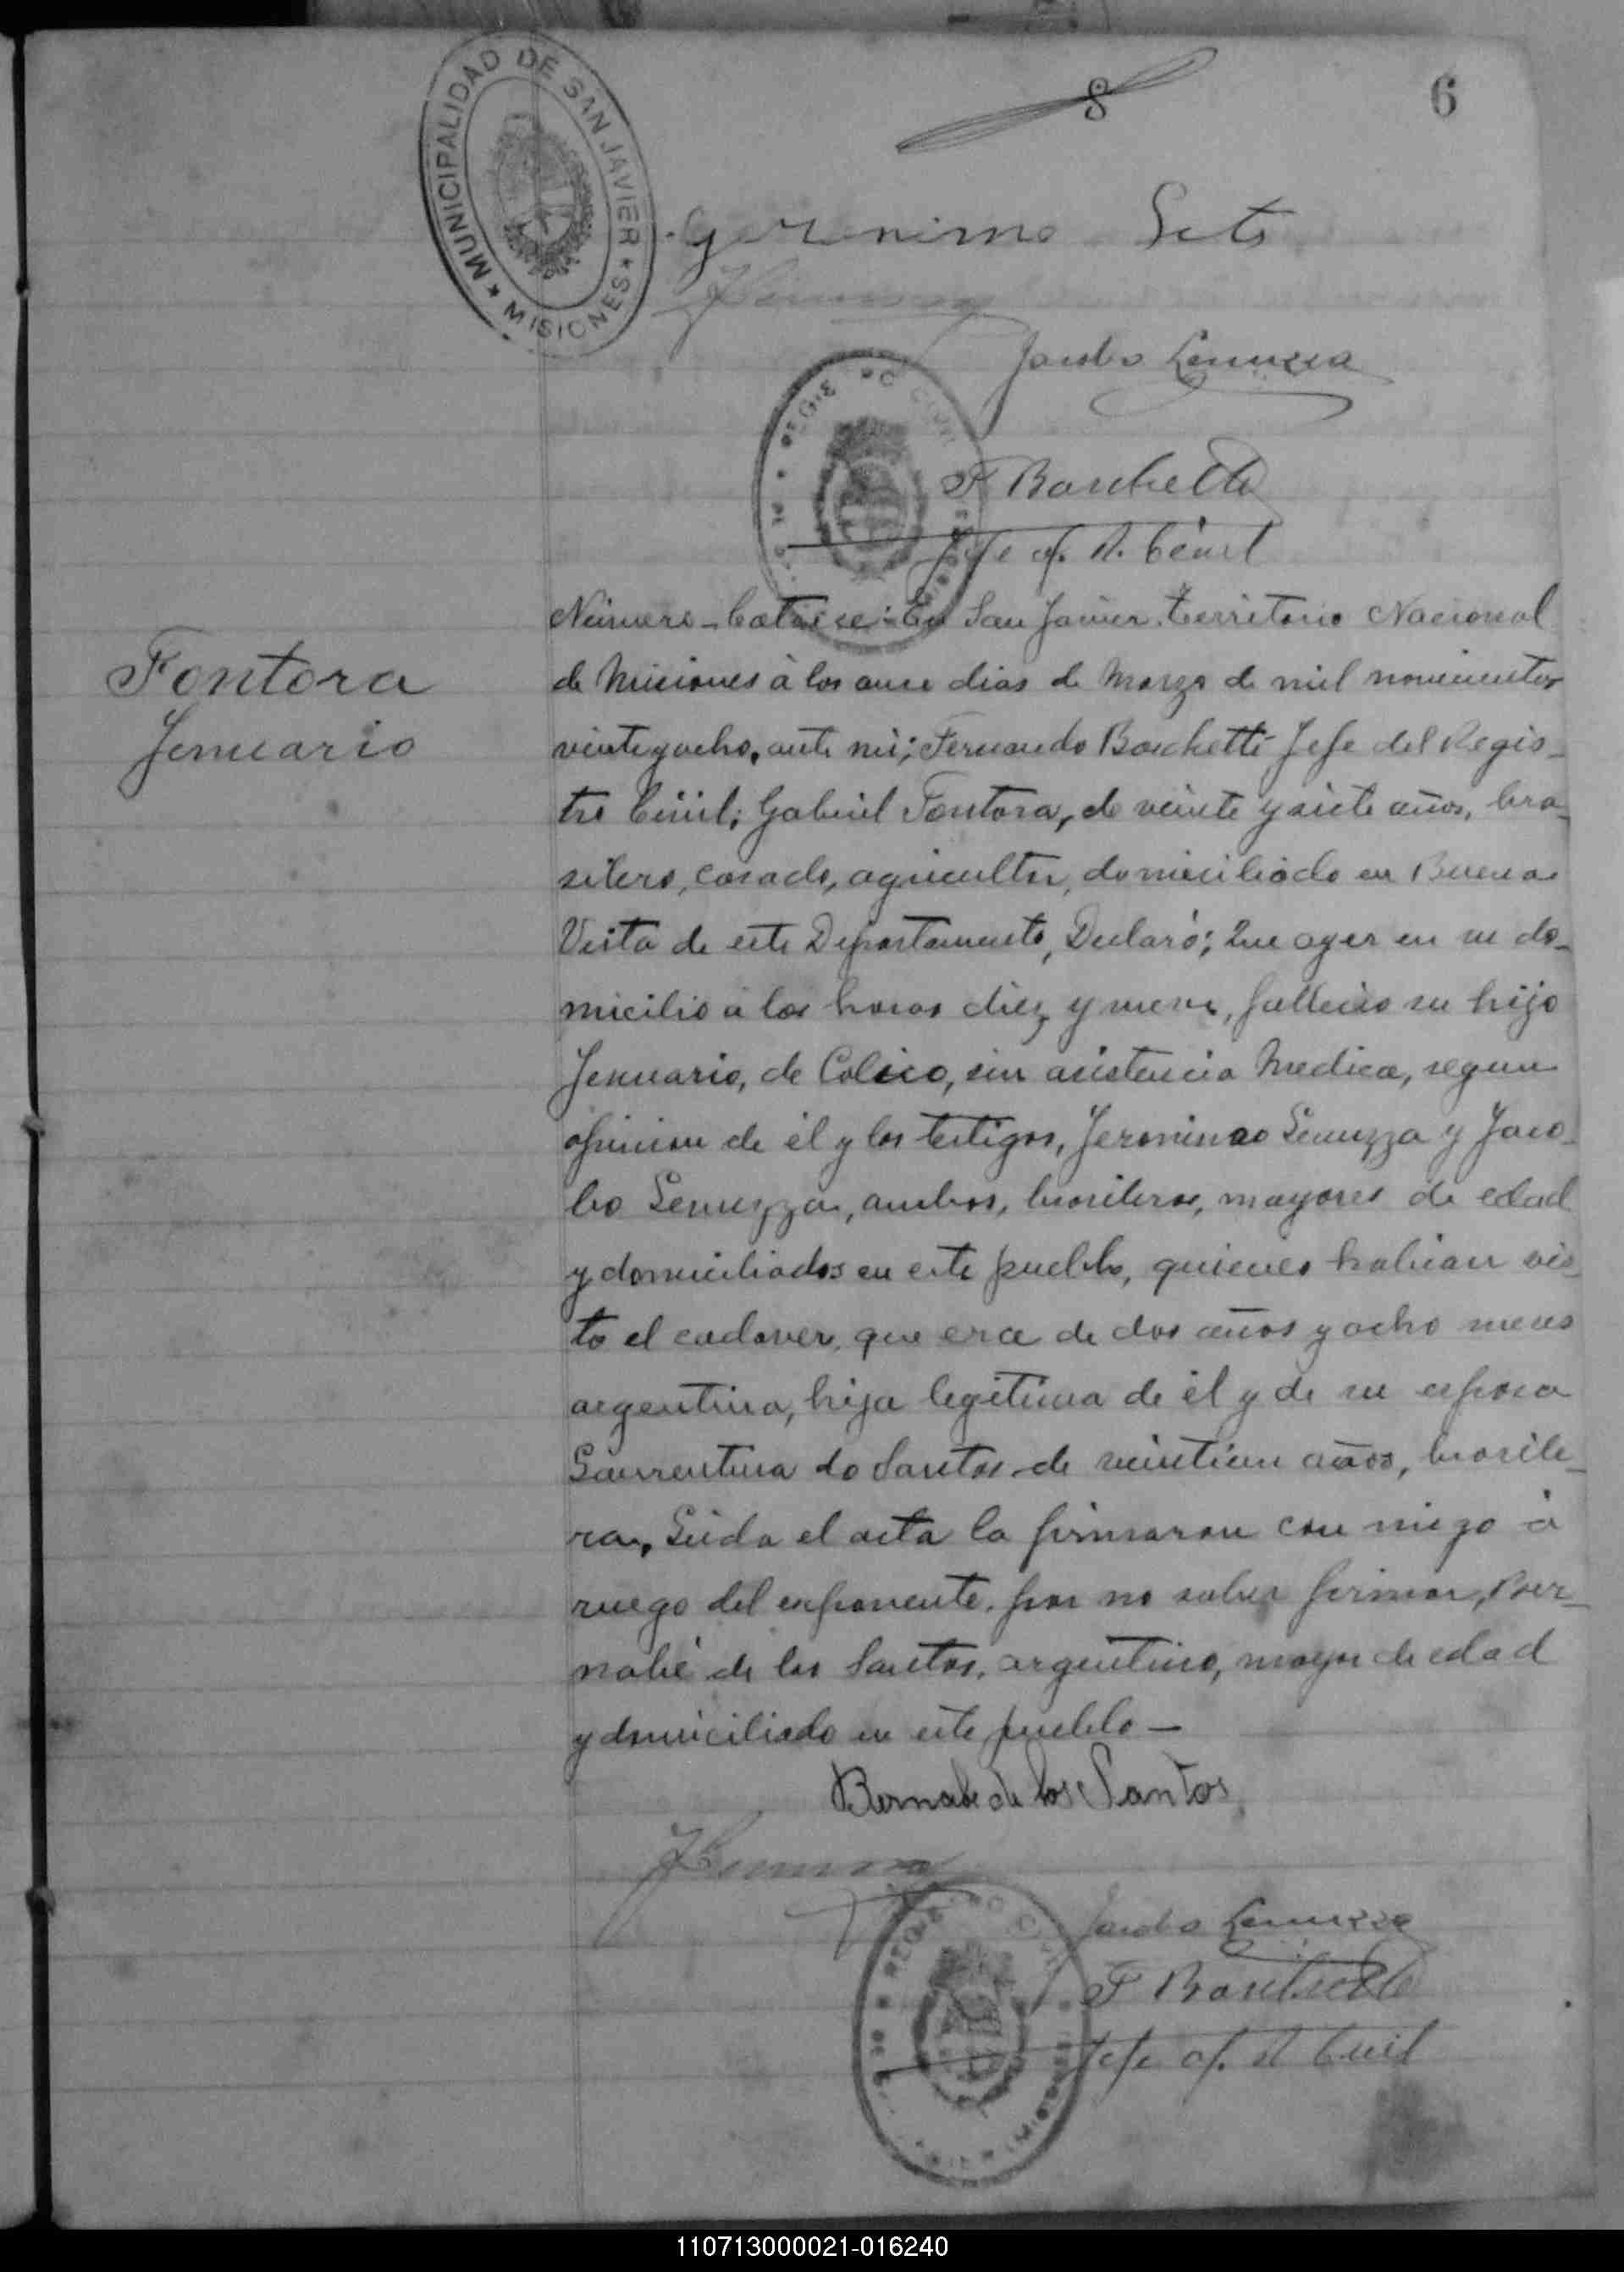 MUNICIPALIDAD DE SAN JAVIER
★ MISIONES ★
8
6
Geronimo Soto
Jacobo Lenuzza
F Boschetti
Jefe of. R. Civil
Fontora
Jenuario
Número - Catorce: En San Javier Territorio Nacional
de Misiones à los once dias de Marzo de mil novecientos
veinteyocho, ante mi; Fernando Boschetti Jefe del Regis-
tro Civil; Gabriel Fontora, de veinte y siete años, bra-
silero, casado, agricultor, domiciliado en Buena
Vista de este Departamento, Declaró; Que ayer en su do-
micilio a las horas diez y nueve, fallecio su hijo
Jenuario, de Colico, sin asistencia Medica, segun
opinion de él y los testigos, Jeronimo Lenuzza y Jaco-
bo Lenuzza, ambos, brasileros, mayores de edad
y domiciliados en este pueblo, quienes habian vis-
to el cadaver, que era de dos años y ocho meses
argentina, hija legitima de él y de su esposa
Laurentina do Santos de veintiun años, brasile-
ra, Leida el acta la firmaron con migo à
ruego del exponente, por no saber firmar, Ber-
nabé de los Santos, argentino, mayor de edad
y domiciliado en este pueblo —
Bernabe de los Santos
Jacobo Lenuzza
F Boschetti
Jefe of. R Civil
110713000021-016240